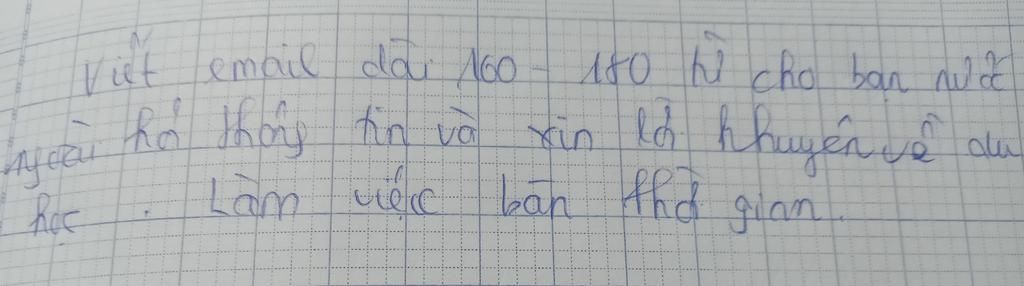 Viết email dài 160 - 180 từ cho bạn nước
ngoài hỏi thông tin và xin lời khuyên về du
học . Làm việc bán thời gian.